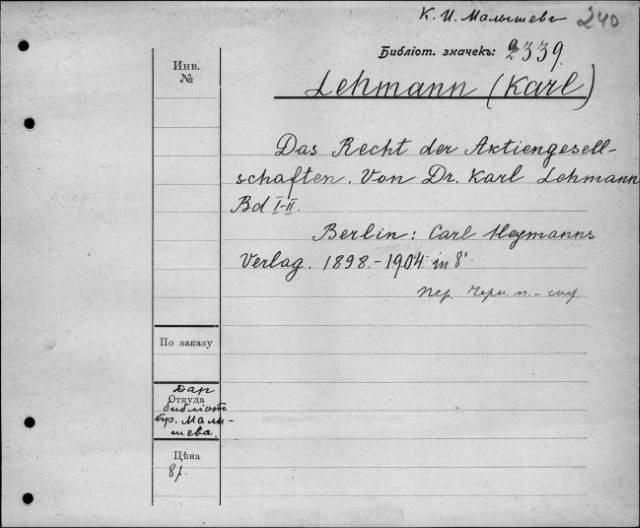 К. И. Малышевъ 240
Библіот. значекъ: 2339.
Инв.
№
Lehmann (Karl)
Das Recht der Aktiengesell-
schaften. Von Dr. Karl Lehmann
Bd I-II.
Berlin: Carl Heymanns
Verlag. 1898.-1904 in 8°
пер.
По заказу
Дар
Откуда
библіот
пр. Малы-
шева.
Цѣна
8р.